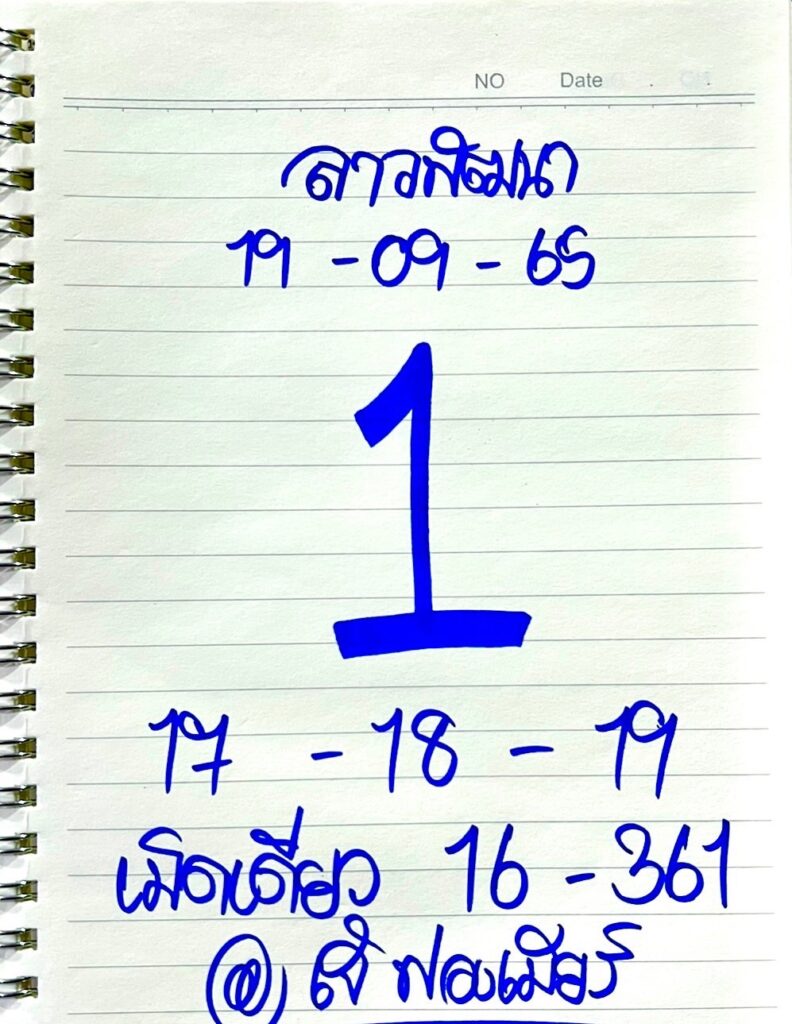 NO Date
ลาวพัฒนา
19 - 09 - 65
1
17 - 18 - 19
เม็ดเดียว 16 - 361
@ เจ๊ฟองเบียร์